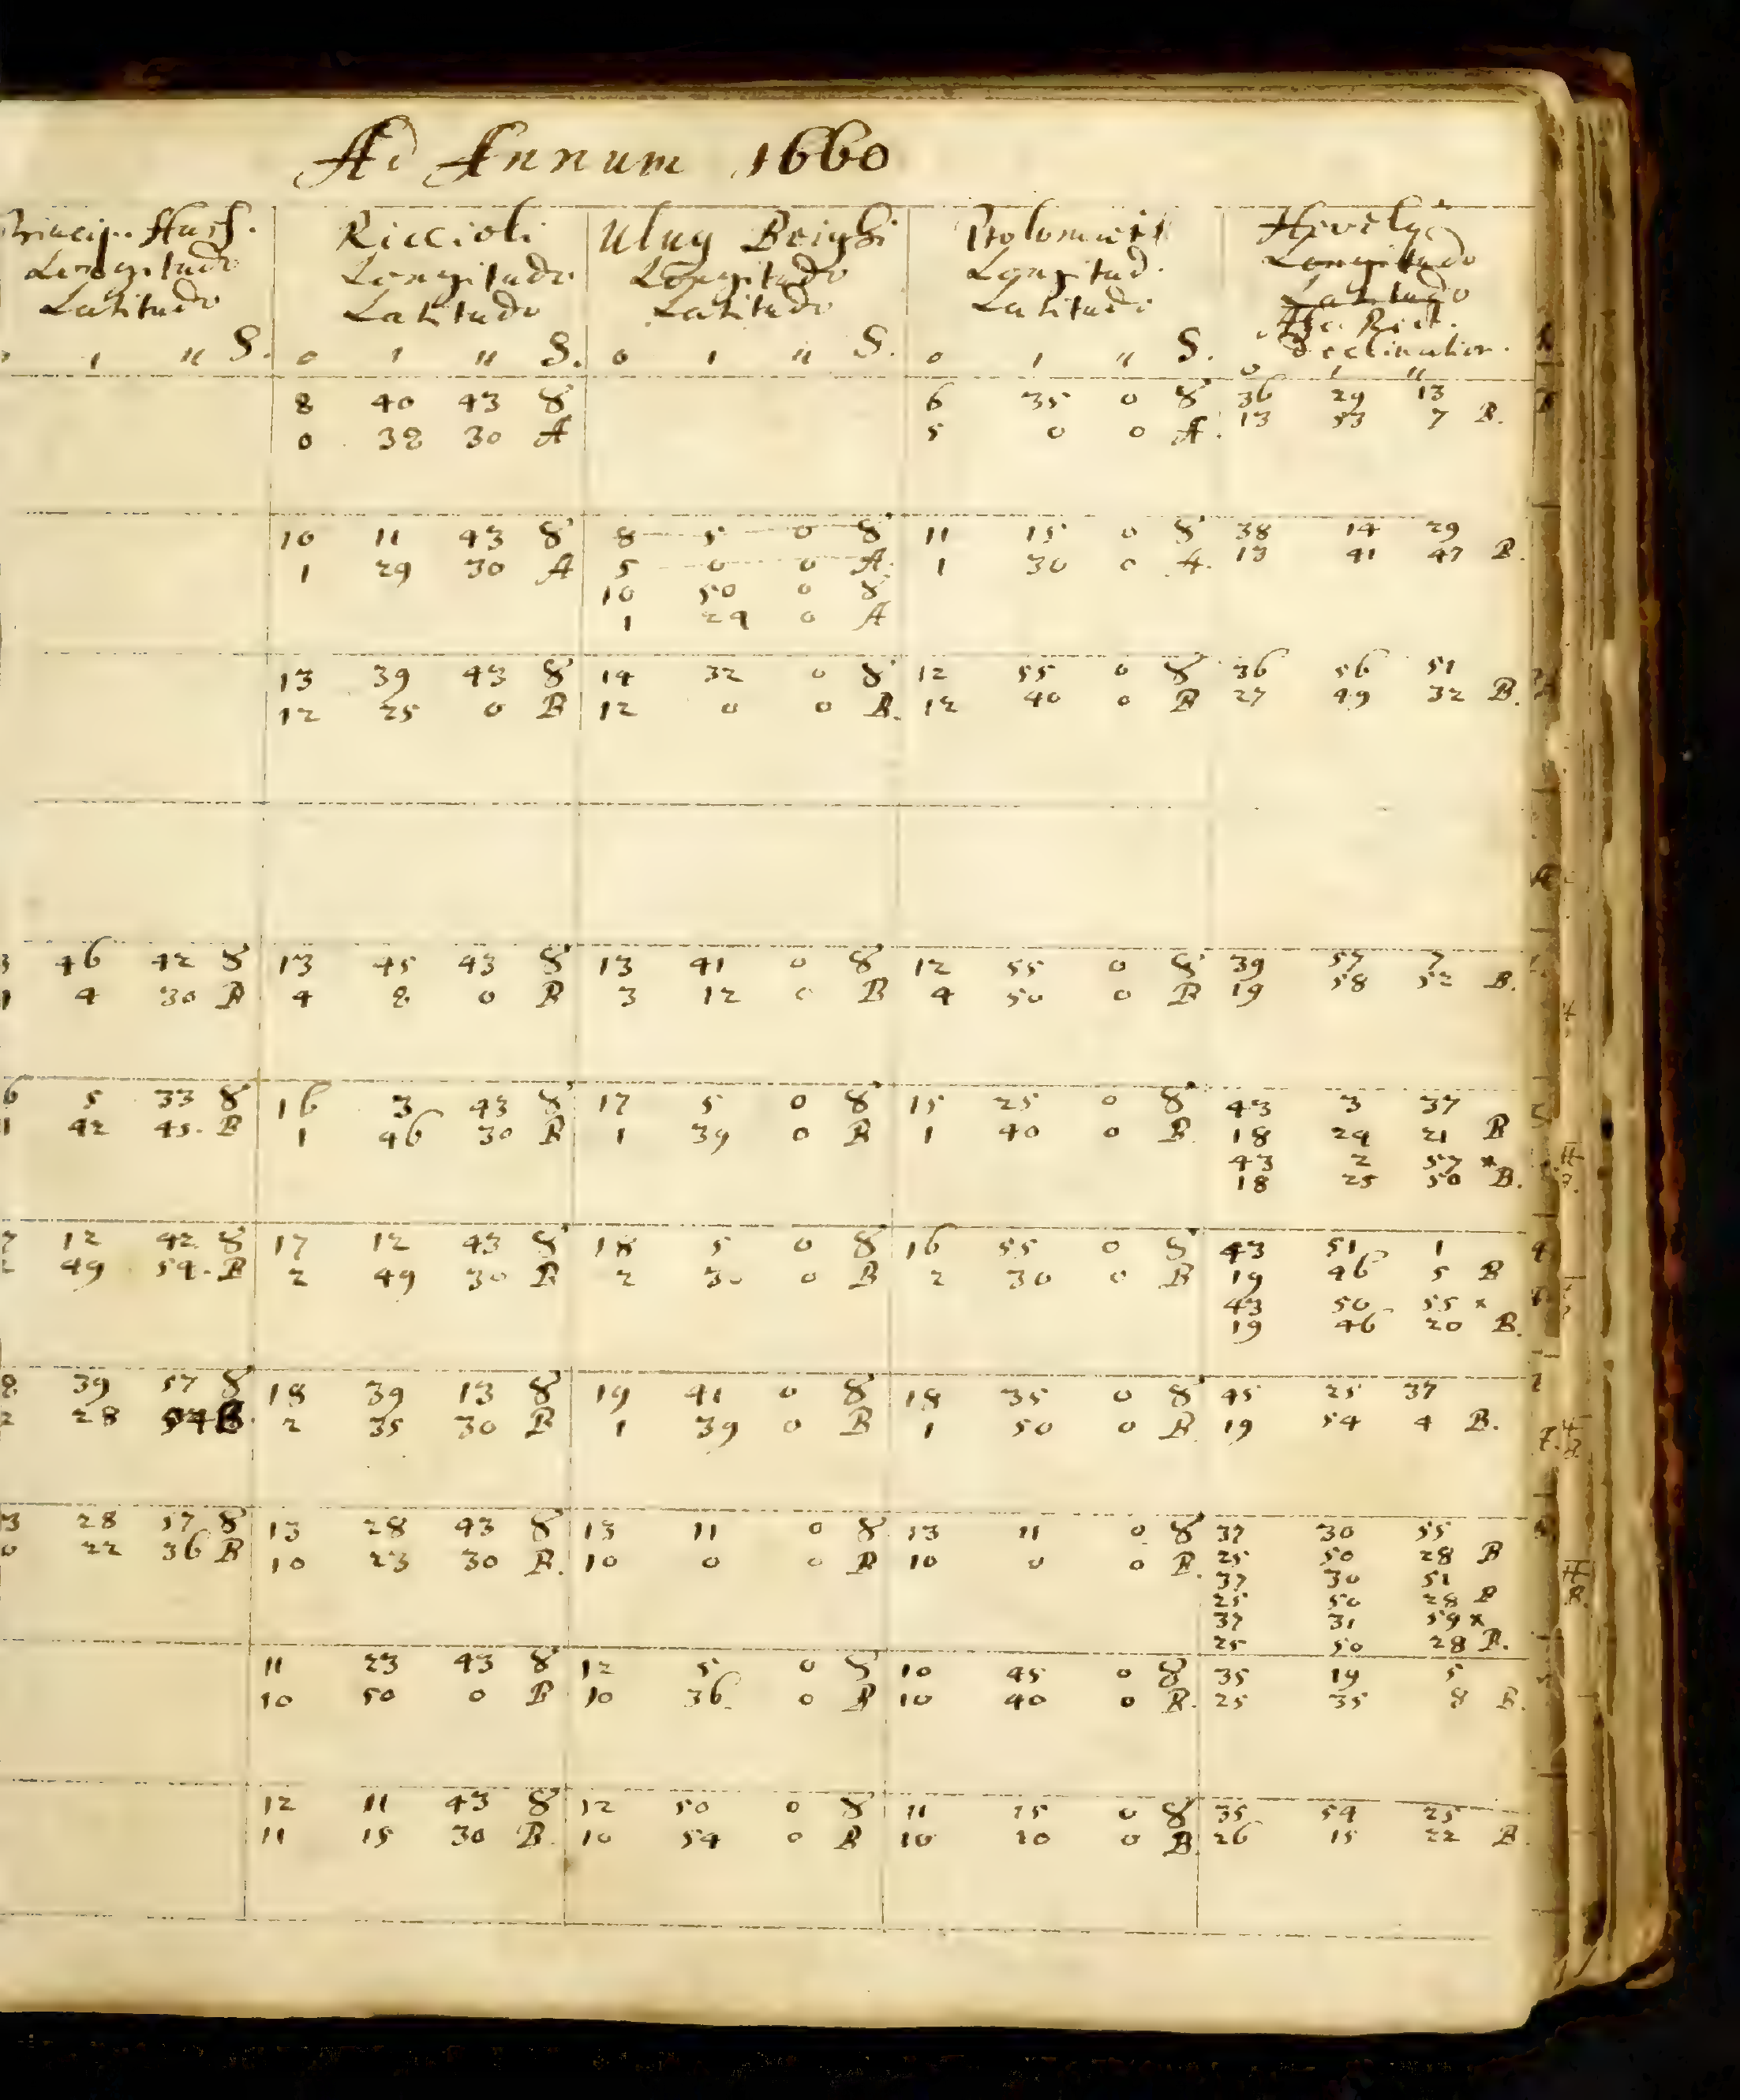 Ad Annum 1660
Princip. Hass. Riccioli Ulug Beighi Ptolomaei Hevely
Longitudo Longitudo Longitudo Longitud. Longitudo
Latitudo Latitudo Latitudo Latitudo Latitudo
Asc. Rect.
° ' " S. ° ' " S. ° ' " S. ° ' " S. Declination.
° ' "
8 40 43 ♉ 6 35 0 ♉ 36 29 13
0 38 30 A 5 0 0 A. 13 53 7 B.
10 11 43 ♉ 8 5 0 ♉ 11 15 0 ♉ 38 14 29
1 29 30 A 5 0 0 A. 1 30 0 A. 13 41 47 B.
10 50 0 ♉
1 29 0 A
13 39 43 ♉ 14 32 0 ♉ 12 55 0 ♉ 36 56 51
12 25 0 B 12 0 0 B. 12 40 0 B 27 49 32 B.
3 46 42 ♉ 13 45 43 ♉ 13 41 0 ♉ 12 55 0 ♉ 39 57 7
4 30 B 4 8 0 B 3 12 0 B 4 50 0 B 19 58 52 B.
6 5 33 ♉ 16 3 43 ♉ 17 5 0 ♉ 15 25 0 ♉ 43 3 37
1 42 45. B 1 46 30 B 1 39 0 B 1 40 0 B. 18 24 21 B
43 2 57 *
18 25 50 B.
12 42 ♉ 17 12 43 ♉ 18 5 0 ♉ 16 55 0 ♉ 43 51 1
49 54. B 2 49 30 B 2 30 0 B 2 30 0 B 19 46 5 B
43 50 55 *
19 46 20 B.
8 39 57 ♉ 18 39 13 ♉ 19 41 0 ♉ 18 35 0 ♉ 45 25 37
2 28 54 B. 2 35 30 B 1 39 0 B 1 50 0 B. 19 54 4 B.
3 28 57 ♉ 13 28 43 ♉ 13 11 0 ♉ 13 11 0 ♉ 37 30 55
0 22 36 B 10 23 30 B. 10 0 0 B 10 0 0 B. 25 50 28 B
37 30 51
25 50 28 B
37 31 59 *
25 50 28 B.
11 23 43 ♉ 12 5 0 ♉ 10 45 0 ♉ 35 19 5
10 50 0 B 10 36 0 B 10 40 0 B. 25 35 8 B.
12 11 43 ♉ 12 50 0 ♉ 11 15 0 ♉ 35 54 25
11 15 30 B. 10 54 0 B 10 10 0 B. 26 15 22 B.